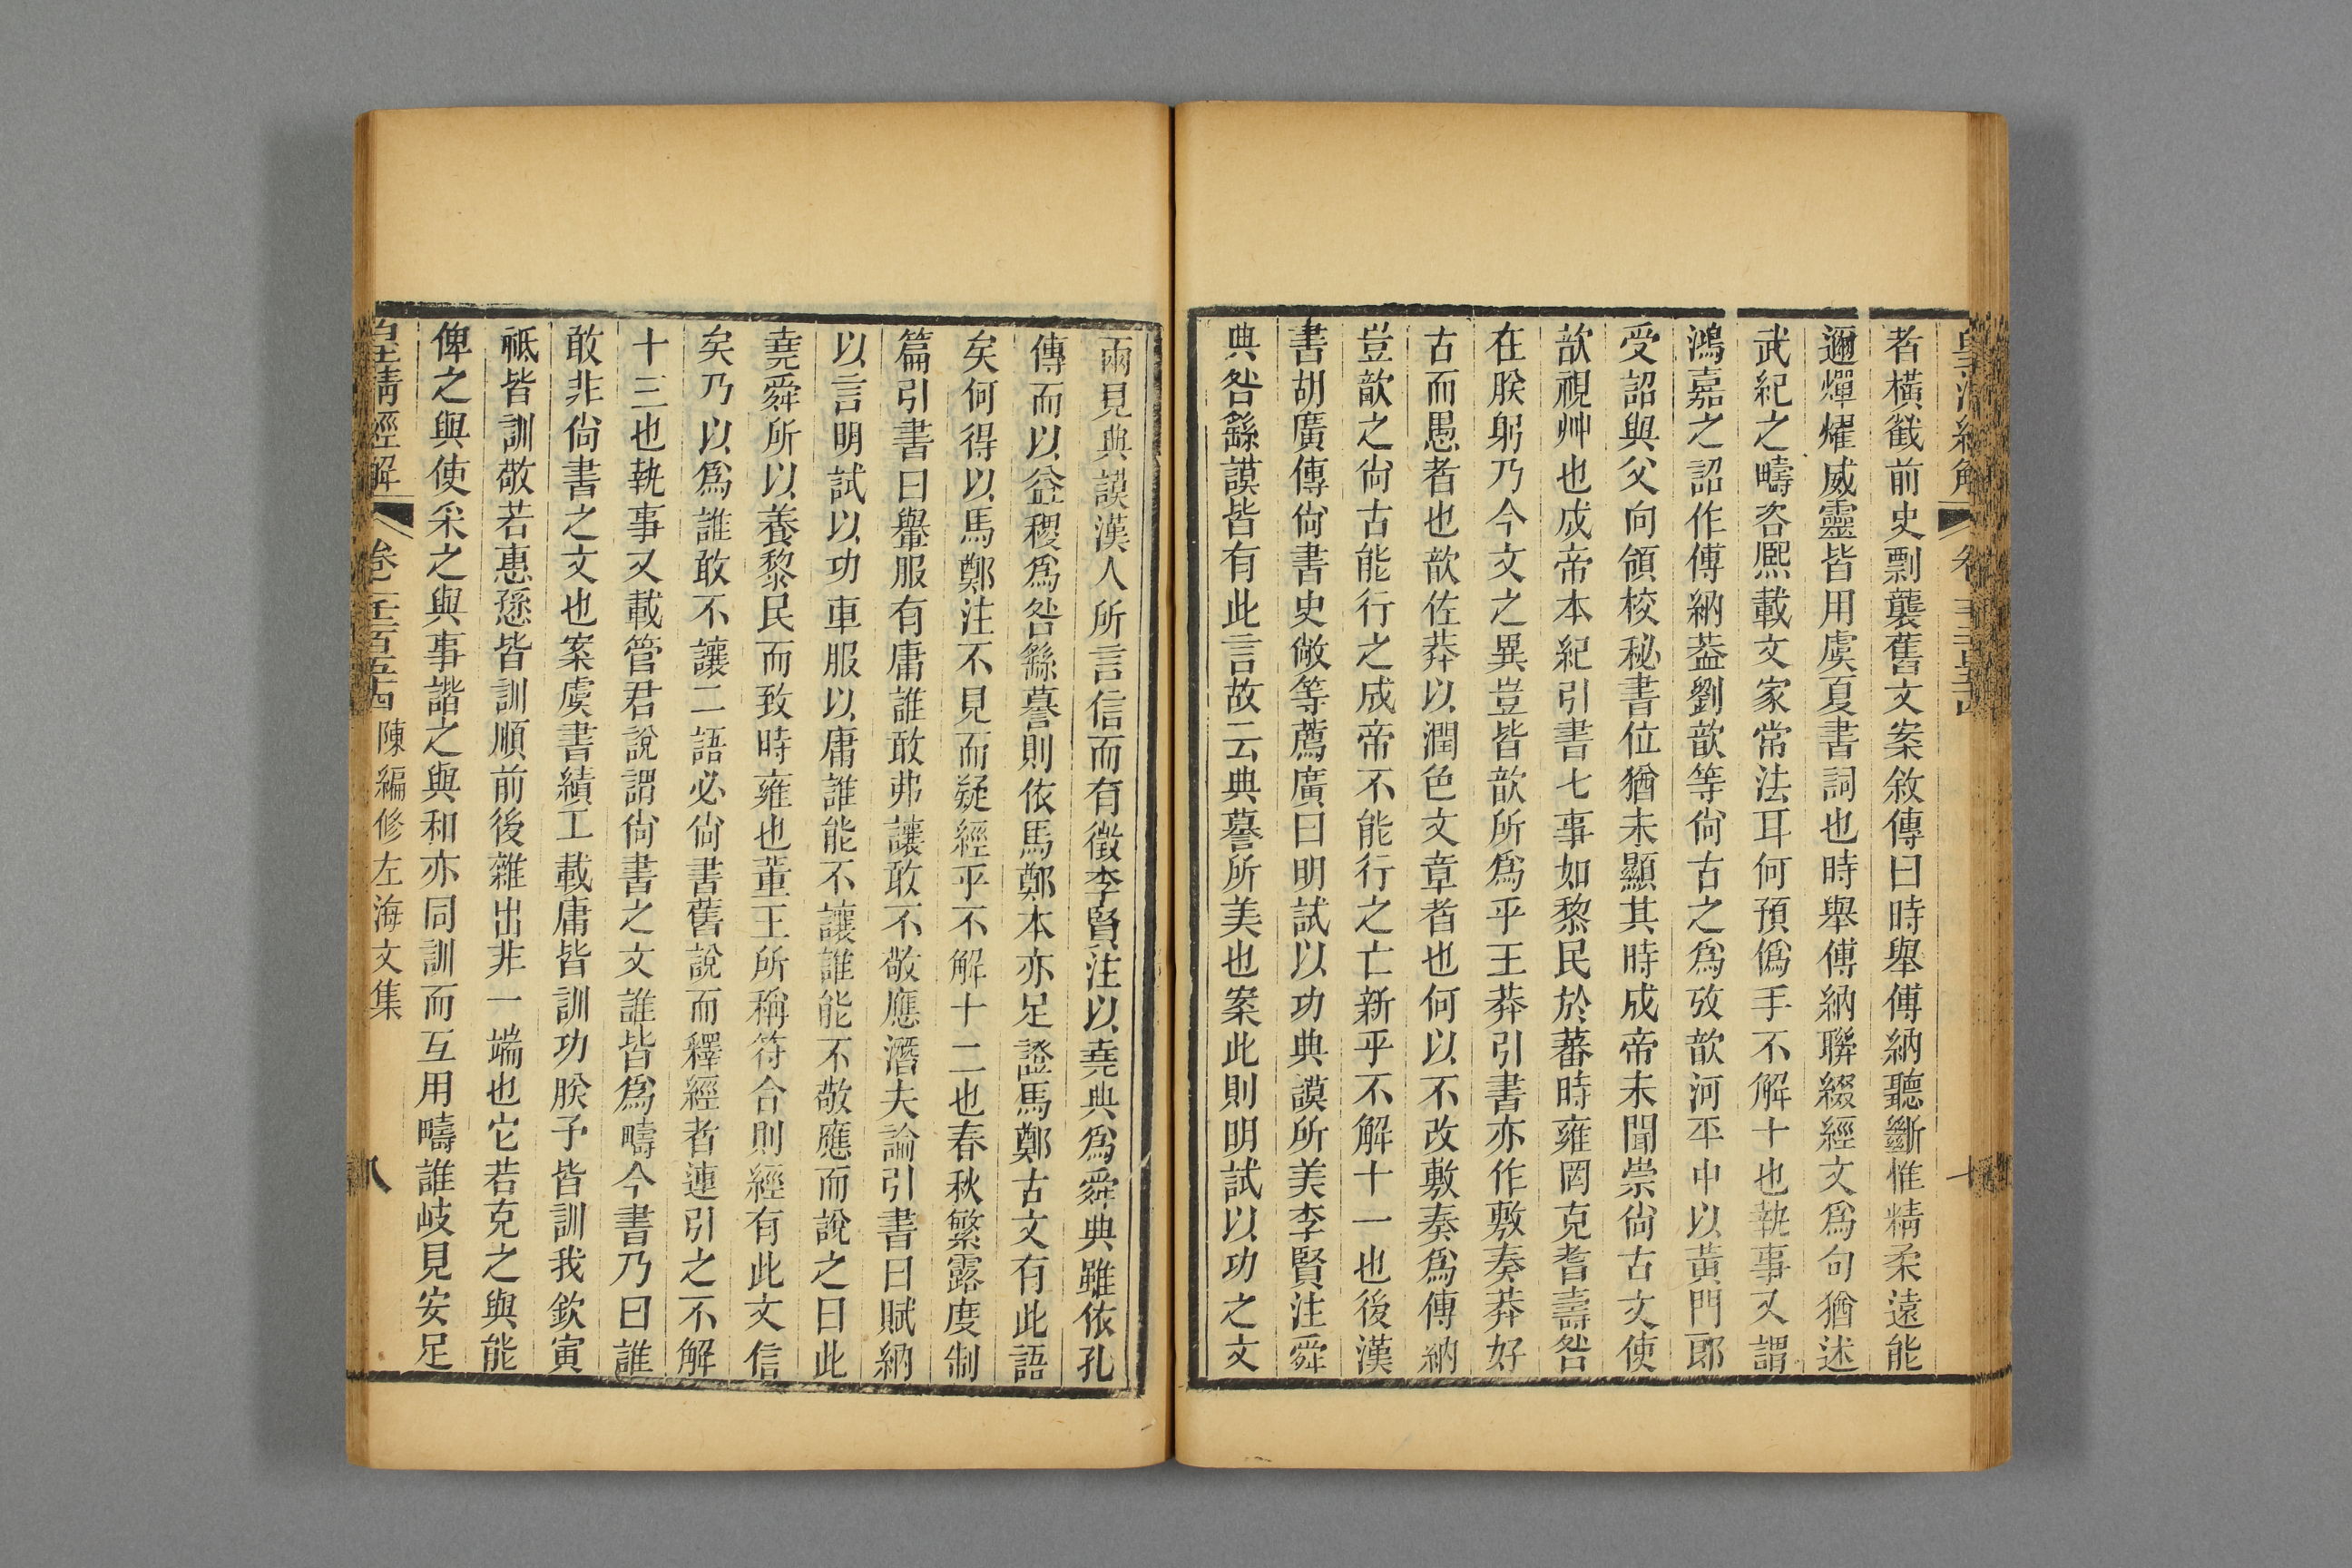 者橫截前史剽襲舊文案敘傳曰時舉傅納聽斷惟精柔遠能
邇燀燿威靈皆用虞夏書詞也時舉傅納聯綴經文爲句猶述
武紀之疇咨熙載文家常法耳何預僞手不解十也執事又謂
鴻嘉之詔作傅納葢劉歆等尙古之爲攷歆河平中以黃門郎
受詔與父向領校秘書位猶未顯其時成帝未聞崇尙古文使
歆視艸也成帝本紀引書七事如黎民於蕃時雍罔克耆壽咎
在朕躬乃今文之異豈皆歆所爲乎王莽引書亦作敷奏莽好
古而愚者也歆佐莽以潤色文章者也何以不改敷奏爲傅納
豈歆之尙古能行之成帝不能行之亡新乎不解十一也後漢
書胡廣傳尙書史敞等薦廣曰明試以功典謨所美李賢注舜
典咎繇謨皆有此言故云典謩所美也案此則明試以功之文
兩見典謨漢人所言信而有徵李賢注以堯典爲舜典雖依孔
傳而以益稷爲咎繇謩則依馬鄭本亦足證馬鄭古文有此語
矣何得以馬鄭注不見而疑經乎不解十二也春秋繁露度制
篇引書曰轝服有庸誰敢弗讓敢不敬應潛夫論引書曰賦納
以言明試以功車服以庸誰能不讓誰能不敬應而說之曰此
堯舜所以養黎民而致時雍也董王所稱符合則經有此文信
矣乃以爲誰敢不讓二語必尙書舊說而釋經者連引之不解
十三也執事又載管君說謂尙書之文誰皆爲疇今書乃曰誰
敢非尙書之文也案虞書績工載庸皆訓功朕予皆訓我欽寅
祇皆訓敬若惠愻皆訓順前後雜出非一端也它若克之與能
俾之與使采之與事諧之與和亦同訓而互用疇誰岐見安足
皇淸經解 卷一千二百五十四 陳編修左海文集 八